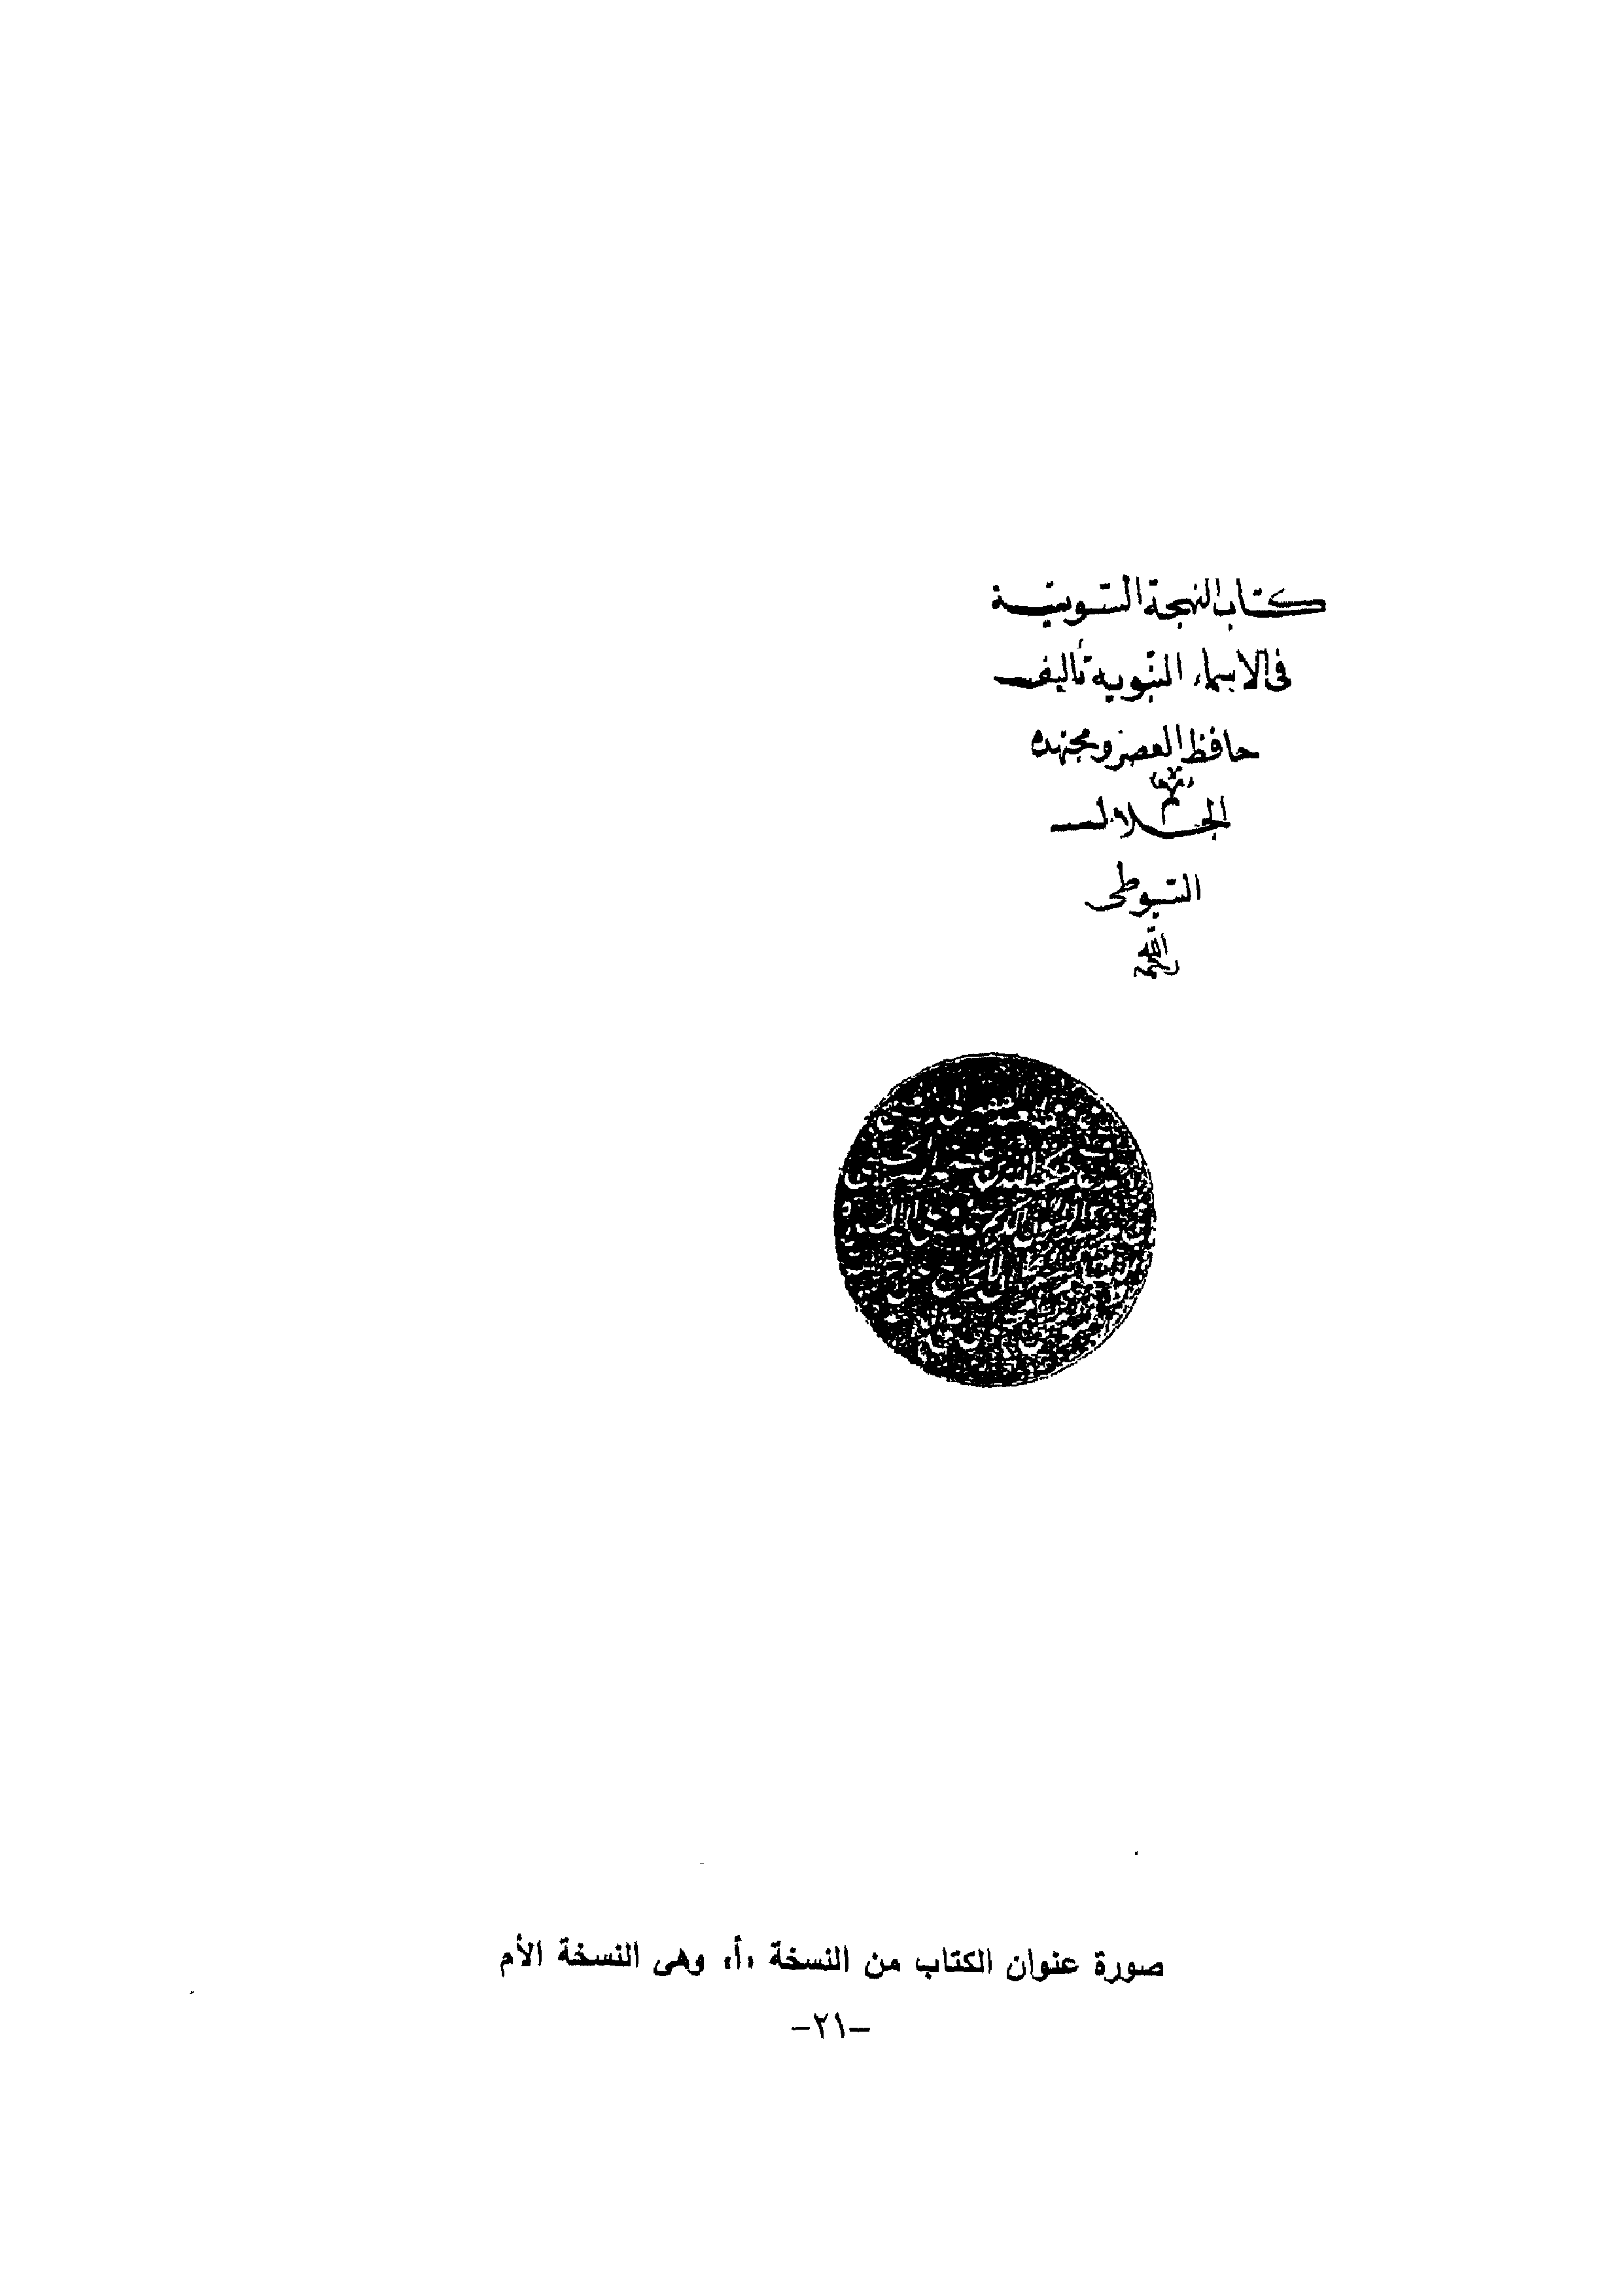 كتاب النهجة السّويّة
فى الاسماء النّبويه تأليف
حافظ العصر ومجتهده
الجلال
السّيوطى
رحمه الله
صورة عنوان الكتاب من النسخة «أ» وهى النسخة الأم
–٢١–